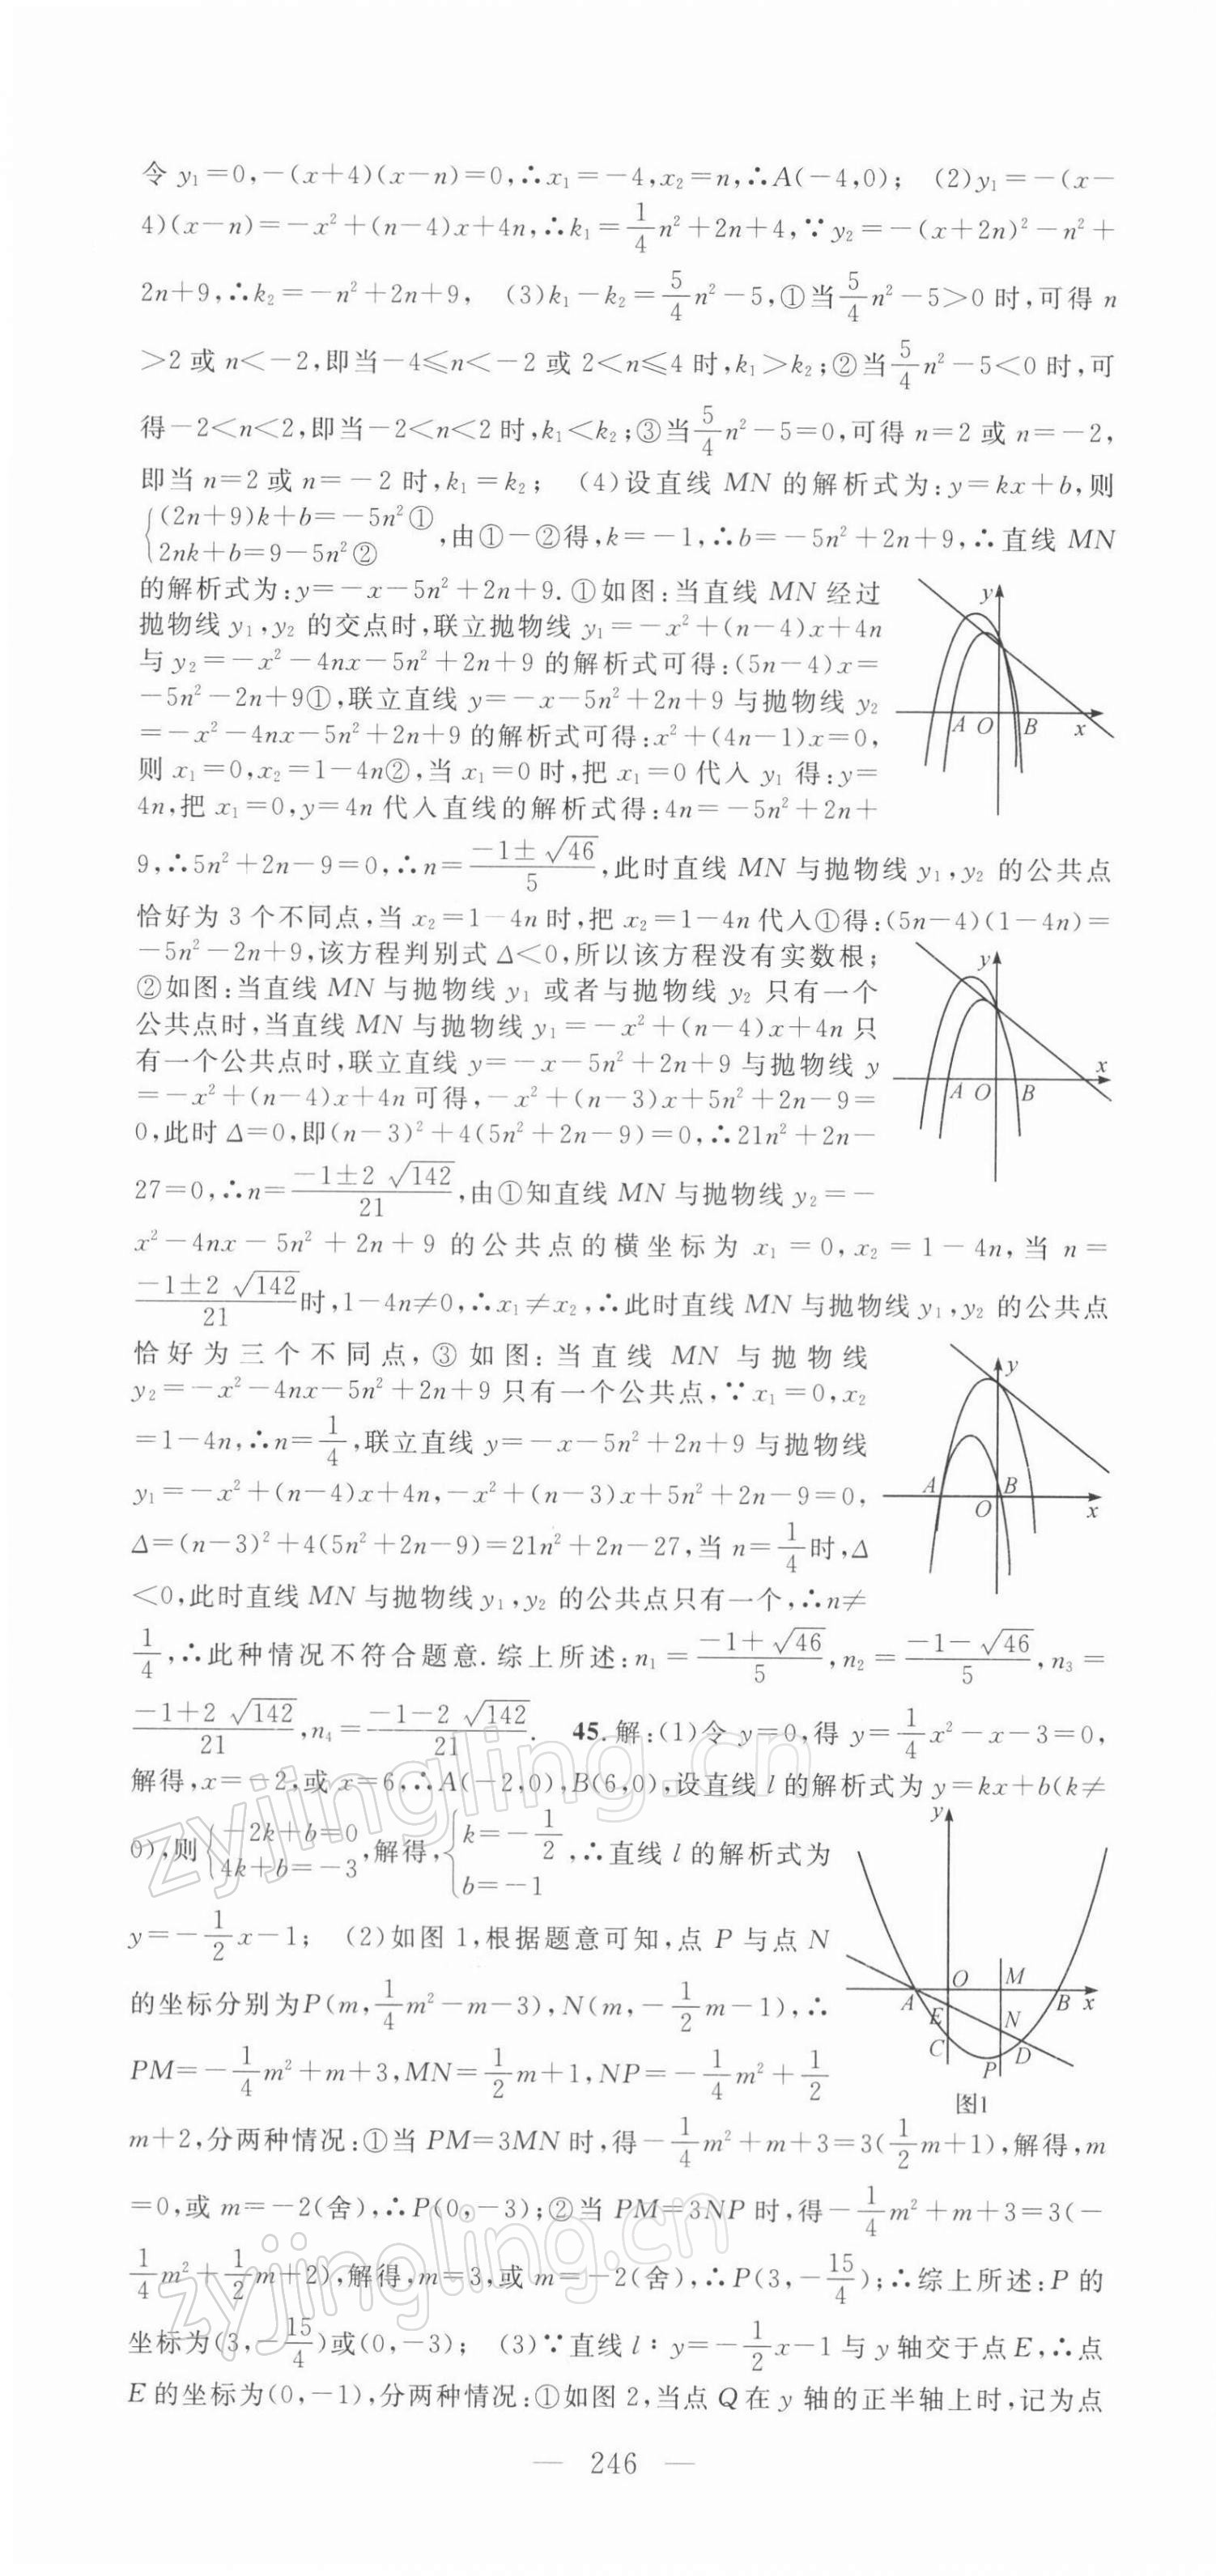 令 y₁=0,-(x+4)(x-n)=0,∴x₁=-4,x₂=n,∴A(-4,0); (2)y₁=-(x-
4)(x-n)=-x²+(n-4)x+4n,∴k₁=1/4n²+2n+4,∵y₂=-(x+2n)²-n²+
2n+9,∴k₂=-n²+2n+9, (3)k₁-k₂=5/4n²-5,①当5/4n²-5>0 时,可得 n
>2 或 n<-2,即当-4≤n<-2 或 2<n≤4 时,k₁>k₂;②当5/4n²-5<0 时,可
得-2<n<2,即当-2<n<2 时,k₁<k₂;③当5/4n²-5=0,可得 n=2 或 n=-2,
即当 n=2 或 n=-2 时,k₁=k₂; (4)设直线 MN 的解析式为:y=kx+b,则
{(2n+9)k+b=-5n²①
2nk+b=9-5n²② ,由①-②得,k=-1,∴b=-5n²+2n+9,∴直线 MN
的解析式为:y=-x-5n²+2n+9.①如图:当直线 MN 经过
抛物线 y₁,y₂ 的交点时,联立抛物线 y₁=-x²+(n-4)x+4n
与 y₂=-x²-4nx-5n²+2n+9 的解析式可得:(5n-4)x=
-5n²-2n+9①,联立直线 y=-x-5n²+2n+9 与抛物线 y₂
=-x²-4nx-5n²+2n+9 的解析式可得:x²+(4n-1)x=0,
则 x₁=0,x₂=1-4n②,当 x₁=0 时,把 x₁=0 代入 y₁ 得:y=
4n,把 x₁=0,y=4n 代入直线的解析式得:4n=-5n²+2n+
y
A O B x
9,∴5n²+2n-9=0,∴n=(-1±√46)/5,此时直线 MN 与抛物线 y₁,y₂ 的公共点
恰好为 3 个不同点,当 x₂=1-4n 时,把 x₂=1-4n 代入①得:(5n-4)(1-4n)=
-5n²-2n+9,该方程判别式 Δ<0,所以该方程没有实数根;
②如图:当直线 MN 与抛物线 y₁ 或者与抛物线 y₂ 只有一个
公共点时,当直线 MN 与抛物线 y₁=-x²+(n-4)x+4n 只
有一个公共点时,联立直线 y=-x-5n²+2n+9 与抛物线 y
=-x²+(n-4)x+4n 可得,-x²+(n-3)x+5n²+2n-9=
0,此时 Δ=0,即(n-3)²+4(5n²+2n-9)=0,∴21n²+2n-
y
x
A O B
27=0,∴n=(-1±2√142)/21,由①知直线 MN 与抛物线 y₂=-
x²-4nx-5n²+2n+9 的公共点的横坐标为 x₁=0,x₂=1-4n,当 n=
(-1±2√142)/21时,1-4n≠0,∴x₁≠x₂,∴此时直线 MN 与抛物线 y₁,y₂ 的公共点
恰好为三个不同点,③如图:当直线 MN 与抛物线
y₂=-x²-4nx-5n²+2n+9 只有一个公共点,∵x₁=0,x₂
=1-4n,∴n=1/4,联立直线 y=-x-5n²+2n+9 与抛物线
y₁=-x²+(n-4)x+4n,-x²+(n-3)x+5n²+2n-9=0,
Δ=(n-3)²+4(5n²+2n-9)=21n²+2n-27,当 n=1/4时,Δ
<0,此时直线 MN 与抛物线 y₁,y₂ 的公共点只有一个,∴n≠
y
A B
O x
1/4,∴此种情况不符合题意.综上所述:n₁=(-1+√46)/5,n₂=(-1-√46)/5,n₃=
(-1+2√142)/21,n₄=(-1-2√142)/21. 45.解:(1)令 y=0,得 y=1/4x²-x-3=0,
解得,x=-2,或 x=6,∴A(-2,0),B(6,0),设直线 l 的解析式为 y=kx+b(k≠
0),则{-2k+b=0
4k+b=-3 ,解得,{k=-1/2
b=-1 ,∴直线 l 的解析式为
y=-1/2x-1; (2)如图 1,根据题意可知,点 P 与点 N
的坐标分别为P(m,1/4m²-m-3),N(m,-1/2m-1),∴
PM=-1/4m²+m+3,MN=1/2m+1,NP=-1/4m²+1/2
y
O M
A B x
E N
C D
P
图1
m+2,分两种情况:①当 PM=3MN 时,得-1/4m²+m+3=3(1/2m+1),解得,m
=0,或 m=-2(舍),∴P(0,-3);②当 PM=3NP 时,得-1/4m²+m+3=3(-
1/4m²+1/2m+2),解得,m=3,或 m=-2(舍),∴P(3,-15/4);∴综上所述:P 的
坐标为(3,-15/4)或(0,-3); (3)∵直线 l:y=-1/2x-1 与 y 轴交于点 E,∴点
E 的坐标为(0,-1),分两种情况:①如图 2,当点 Q 在 y 轴的正半轴上时,记为点
— 246 —
zyjingling.cn
zyjingling.cn